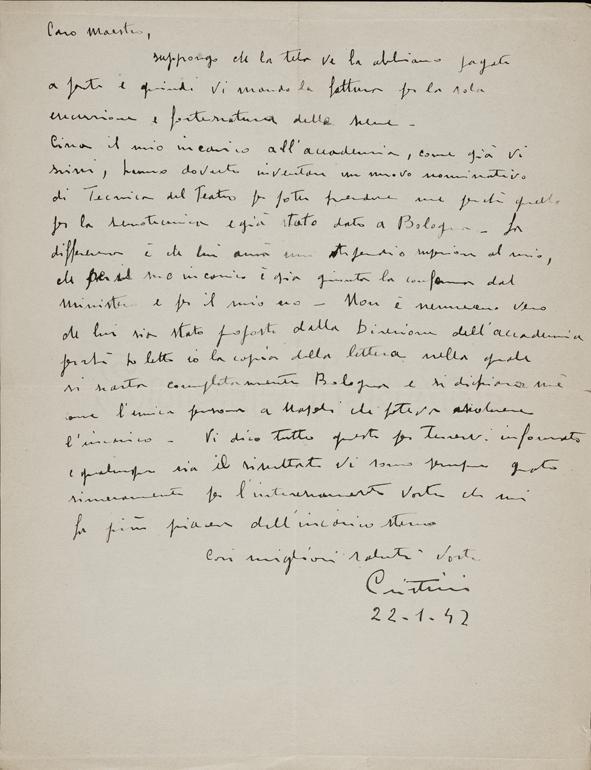 Caro Maestro,
suppongo che la tela ve la abbiano pagata
a parte e quindi vi mando la fattura per la sola
esecuzione e fornitura delle scene -
Circa il mio incarico all'accademia, come già vi
scrissi, hanno dovuto inventare un nuovo nominativo
di Tecnica del Teatro per poter prendere me perché quello
per la scenotecnica è già stato dato a Bologna - La
differenza è che lui avrà uno stipendio superiore al mio,
che per il suo incarico è già giunta la conferma dal
Ministero e per il mio no - Non è nemmeno vero
che lui sia stato proposto dalla Direzione dell'accademia
perché ho letto io la copia della lettera nella quale
si scarta completamente Bologna e si dichiara me
come l'unica persona a Napoli che poteva assolvere
l'incarico - Vi dico tutto questo per tenervi informato
e qualunque sia il risultato vi sono sempre grato
sinceramente per l'interessamento vostro che mi
fa più piacere dell'incarico stesso
Coi migliori saluti vostro
Cristini
22-1-42